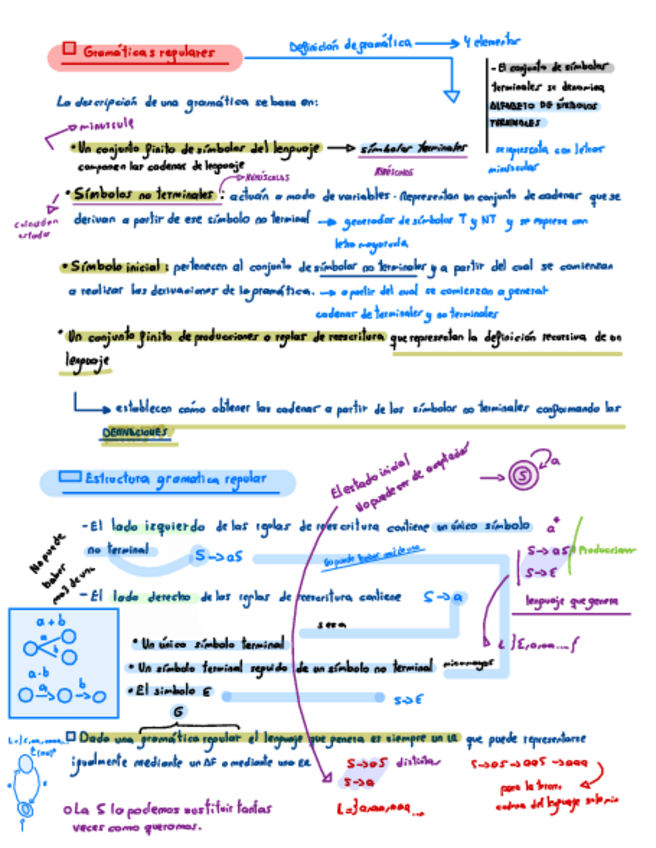 Gramáticas regulares
Definición de gramática → 4 elementos
- El conjunto de símbolos
terminales se denomina
ALFABETO DE SÍMBOLOS
TERMINALES
se representa con letras
minusculas
La descripción de una gramática se basa en:
minuscula
• Un conjunto finito de símbolos del lenguaje → símbolos terminales
componen las cadenas de lenguaje
• Símbolos no terminales: actúan a modo de variables. Representan un conjunto de cadenas que se
derivan a partir de ese símbolo no terminal → generador de símbolos T y NT y se expresa con
letra mayuscula
• Símbolo inicial: pertenecen al conjunto de símbolos no terminales y a partir del cual se comienzan
a realizar las derivaciones de la gramática. → a partir del cual se comienzan a generar
cadenas de terminales y no terminales
• Un conjunto finito de producciones o reglas de reescritura que representan la definición recursiva de un
lenguaje
→ establecen cómo obtener las cadenas a partir de los símbolos no terminales conformando las
DERIVACIONES
Estructura gramatica regular
El estado inicial
No puede ser de aceptador
S
a
- El lado izquierdo de las reglas de reescritura contiene un único símbolo
no terminal
S→aS
a*
S→aS
S→ε
Producciones
lenguaje que genera
L {ε,a,aa...}
No puede
haber
mas de uno
- El lado derecho de las reglas de reescritura contiene
S→a
• Un único símbolo terminal
• Un símbolo terminal seguido de un símbolo no terminal
• El símbolo ε
S→ε
a+b
a
b
a·b
a
b
G
Dada una gramática regular el lenguaje que genera es siempre un LR que puede representarse
igualmente mediante un AF o mediante una ER
S→aS
S→a
distinta
L={a,aa,aaa...
S→aS→aaS→aaa
La S lo podemos sustituir tantas
veces como queramos.